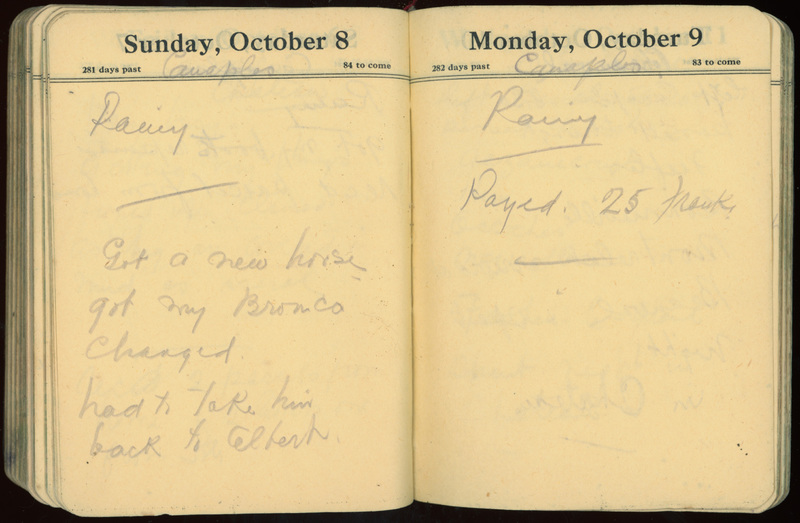 Sunday, October 8
281 days past Canaples 84 to come
Rainy
Got a new horse
got my Bronco
Changed
had to take him
back to Elbert.
Monday, October 9
282 days past Canaples 83 to come
Rainy
Payed. 25 franks